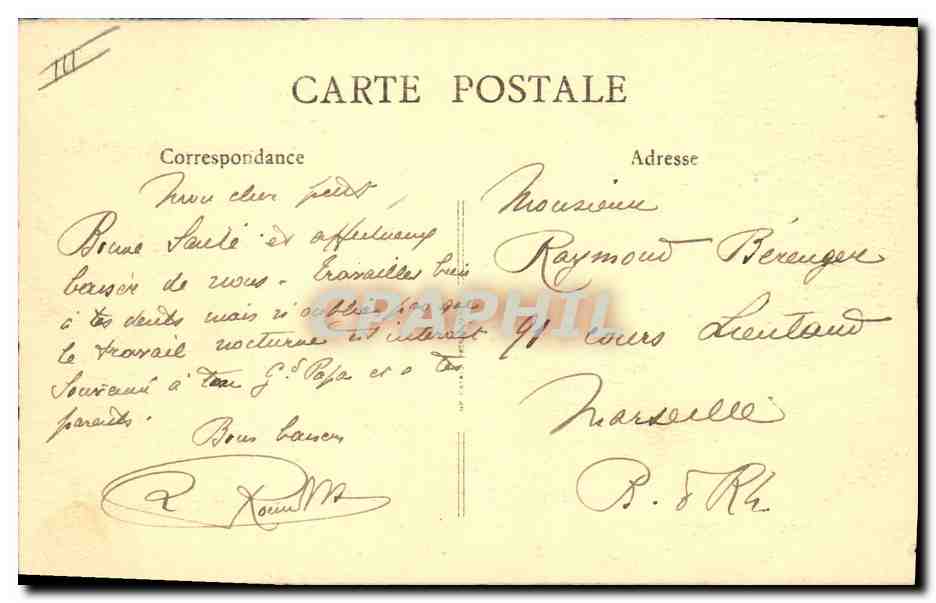 III
CARTE POSTALE
Correspondance
Mon cher petit,
Bonne Santé et affectueux
baiser de nous. Travailles bien
à tes dents mais n'oublie pas que
le travail nocturne est interdit
Souvenir à ton Gd Papa et à tes
parents.
Bons baisers
R
Adresse
Monsieur
Raymond Bérenger
91 cours Lieutaud
Marseille
B. d Rh.
CPAPHIL